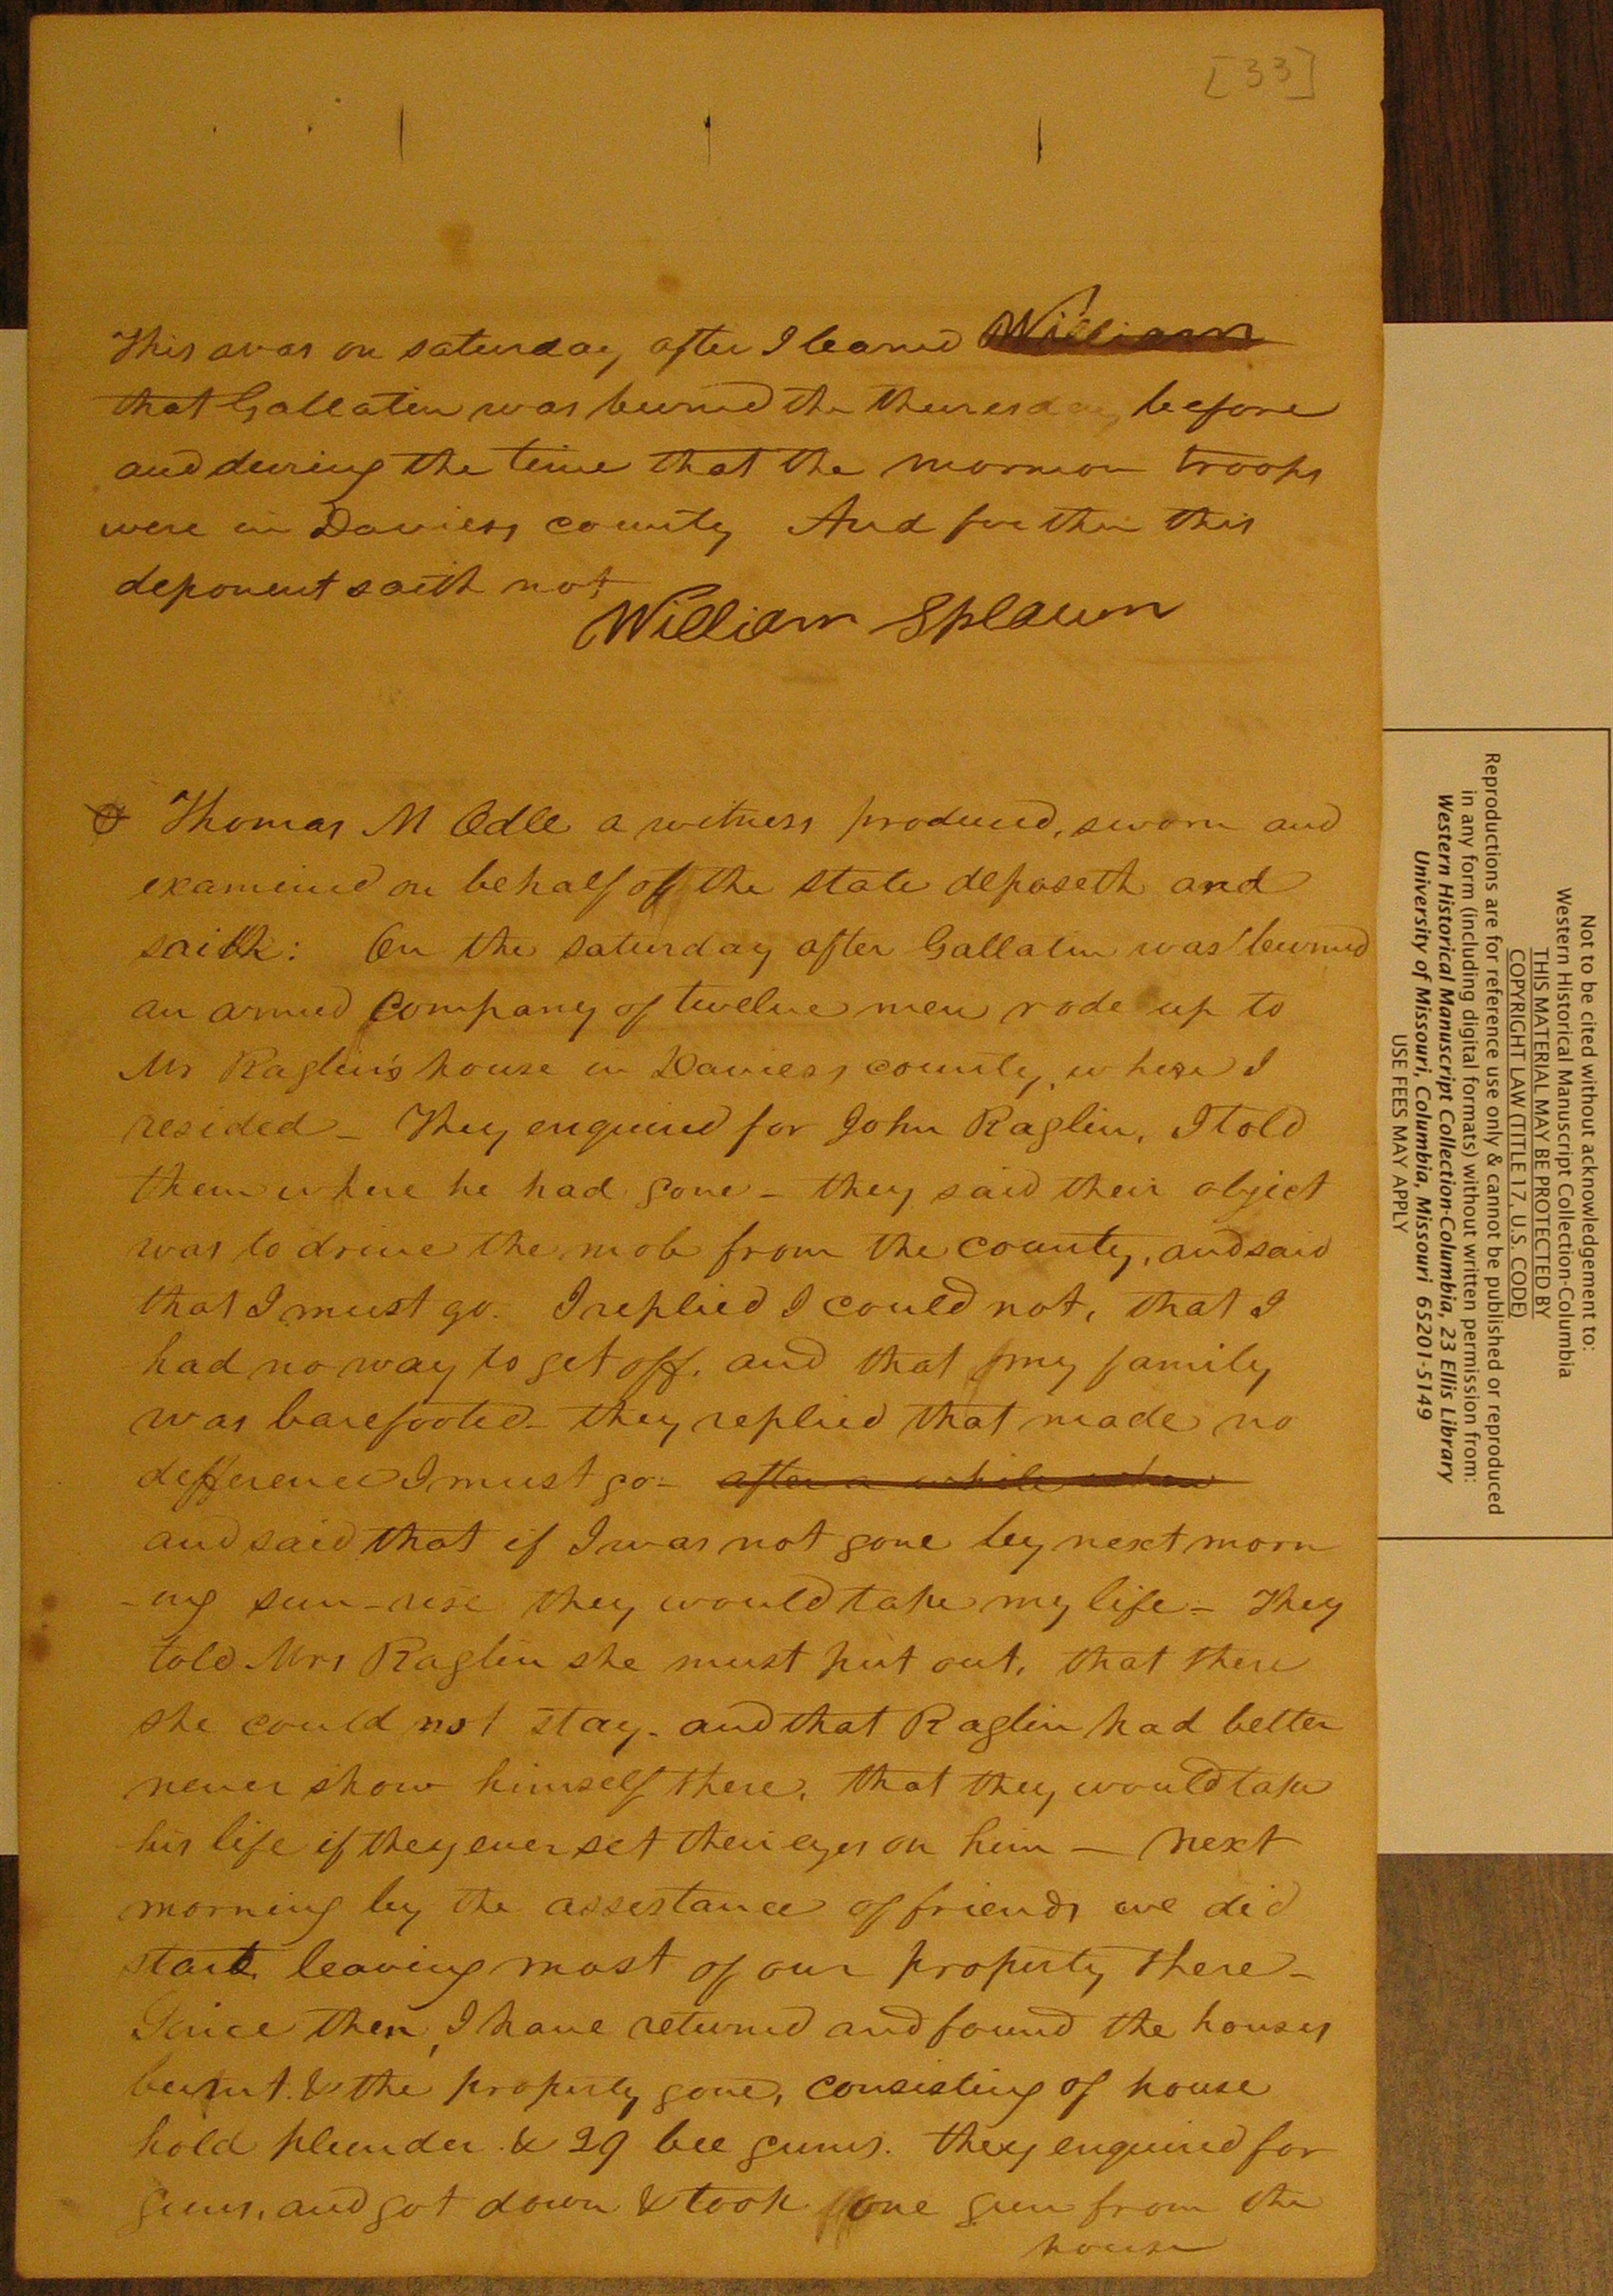 [33]
This was on saturday after I learned William
that Gallatin was burned the thuresday before
and during the time that the mormon troops
were in Daviess county And further this
deponent saith not
William Splawn
Thomas M Odle a witness produced, sworn and
examined on behalf of the state deposeth and
saith: On the saturday after Gallatin was burned
an armed company of twelve men rode up to
Mr Raglin's house in Daviess county, where I
resided - They enquired for John Raglin, I told
them where he had gone - they said their object
was to drive the mob from the county, and said
that I must go. I replied I could not, that I
had no way to get off, and that my family
was barefooted - they replied that made no
difference I must go - after a while when
and said that if I was not gone by next morn
-ing sun-rise they would take my life - They
told Mrs Raglin she must put out, that there
she could not stay - and that Raglin had better
never show himself there, that they would take
his life if they ever set their eyes on him - Next
morning by the assistance of friends we did
start, leaving most of our property there -
Since then, I have returned and found the houses
burnt & the property gone, consisting of house
hold plunder & 29 bee gums. they enquired for
guns, and got down & took one gun from the
house
Not to be cited without acknowledgement to:
Western Historical Manuscript Collection-Columbia
THIS MATERIAL MAY BE PROTECTED BY
COPYRIGHT LAW (TITLE 17, U.S. CODE)
Reproductions are for reference use only & cannot be published or reproduced
in any form (including digital formats) without written permission from:
Western Historical Manuscript Collection-Columbia, 23 Ellis Library
University of Missouri, Columbia, Missouri 65201-5149
USE FEES MAY APPLY